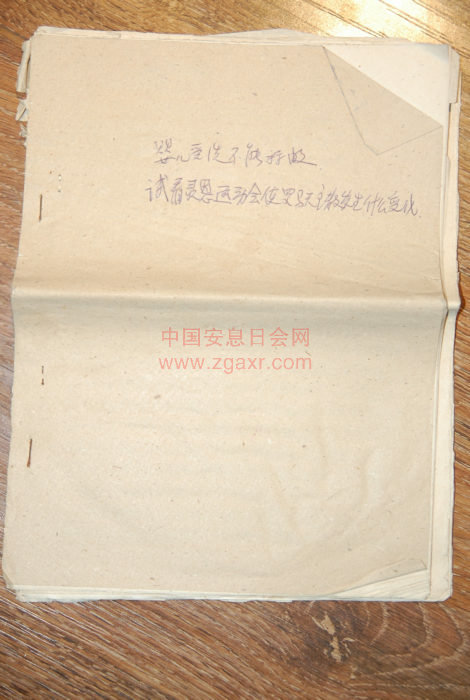 婴儿受洗不能
试看灵恩运动会使罗马天主教发生什么变化.
中国安息日会网
www.zgaxr.com